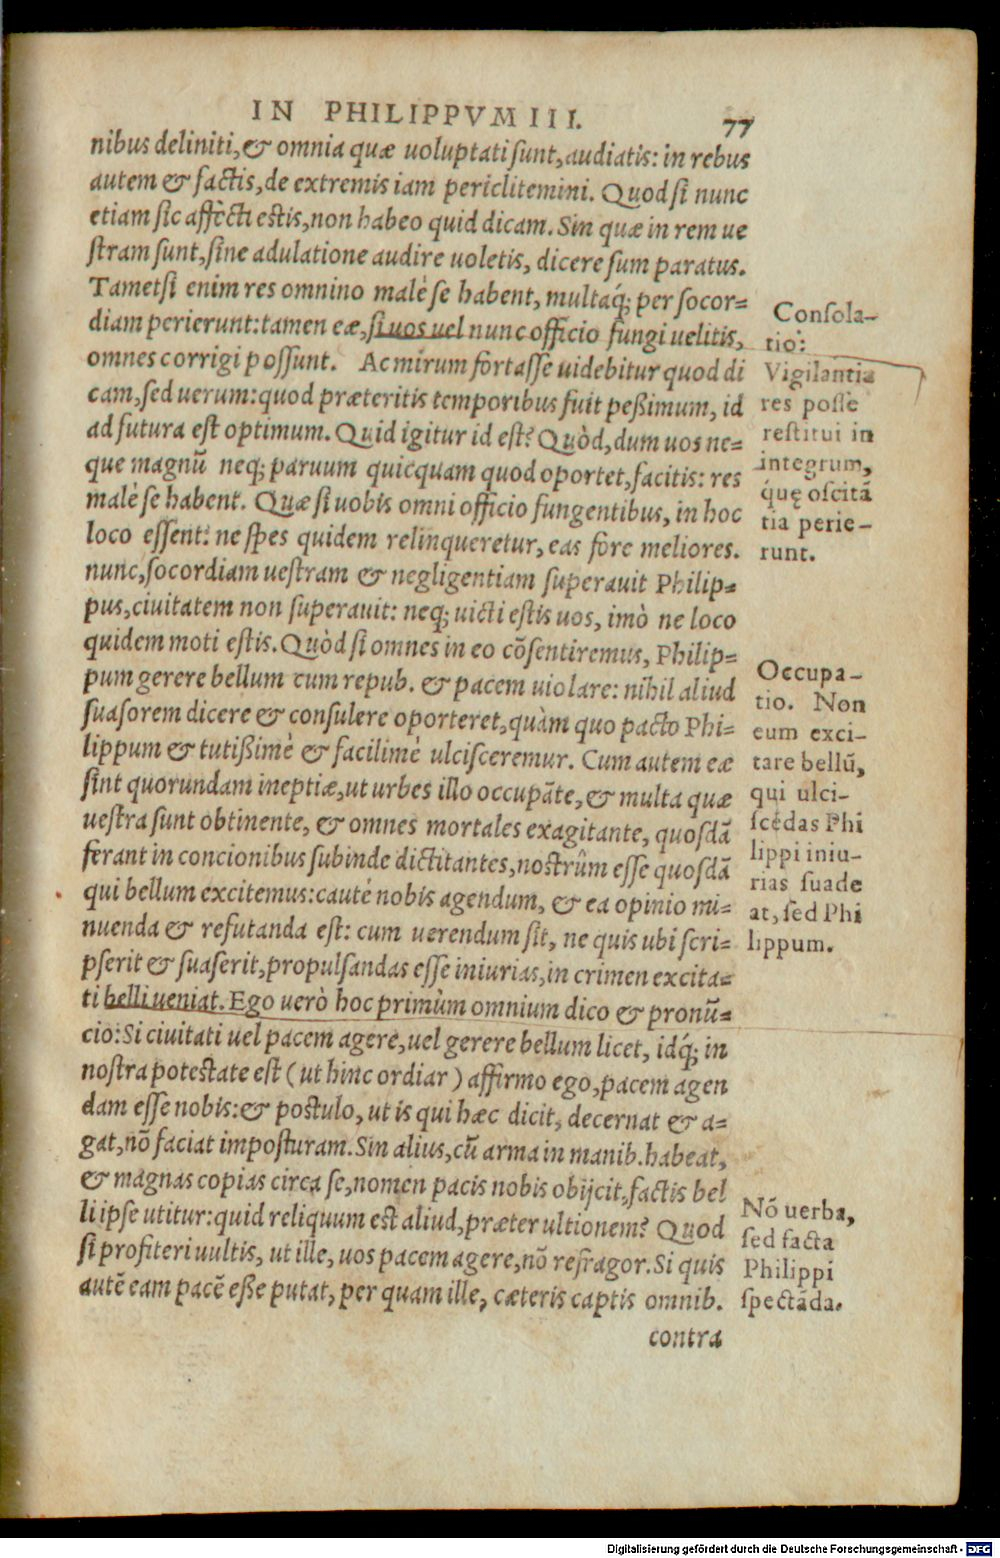 IN PHILIPPVM III. 77
nibus deliniti, & omnia quæ uoluptati sunt, audiatis: in rebus
autem & factis, de extremis iam periclitemini. Quod si nunc
etiam sic affecti estis, non habeo quid dicam. Sin quæ in rem ue
stram sunt, sine adulatione audire uoletis, dicere sum paratus.
Tametsi enim res omnino malè se habent, multaq́; per socor=
diam perierunt: tamen eæ, si uos uel nunc officio fungi uelitis,
omnes corrigi possunt. Ac mirum fortasse uidebitur quod di
cam, sed uerum: quod præteritis temporibus fuit peßimum, id
ad futura est optimum. Quid igitur id est? Quòd, dum uos ne=
que magnū neq; paruum quicquam quod oportet, facitis: res
malè se habent. Quæ si uobis omni officio fungentibus, in hoc
loco essent: ne spes quidem relinqueretur, eas fore meliores.
nunc, socordiam uestram & negligentiam superauit Philip=
pus, ciuitatem non superauit: neq; uicti estis uos, imò ne loco
quidem moti estis. Quòd si omnes in eo cōsentiremus, Philip=
pum gerere bellum cum repub. & pacem uiolare: nihil aliud
suasorem dicere & consulere oporteret, quàm quo pacto Phi=
lippum & tutißimè & facilimè ulcisceremur. Cum autem eæ
sint quorundam ineptiæ, ut urbes illo occupāte, & multa quæ
uestra sunt obtinente, & omnes mortales exagitante, quosdā
ferant in concionibus subinde dictitantes, nostrûm esse quosdā
qui bellum excitemus: cautè nobis agendum, & ea opinio mi=
nuenda & refutanda est: cum uerendum sit, ne quis ubi scri=
pserit & suaserit, propulsandas esse iniurias, in crimen excita=
ti belli ueniat. Ego uerò hoc primùm omnium dico & pronū=
cio: Si ciuitati uel pacem agere, uel gerere bellum licet, idq́; in
nostra potestate est (ut hinc ordiar) affirmo ego, pacem agen
dam esse nobis: & postulo, ut is qui hæc dicit, decernat & a=
gat, nō faciat imposturam. Sin alius, cū arma in manib. habeat,
& magnas copias circa se, nomen pacis nobis obijcit, factis bel
li ipse utitur: quid reliquum est aliud, præter ultionem? Quod
si profiteri uultis, ut ille, uos pacem agere, nō refragor. Si quis
autē eam pacē eße putat, per quam ille, cæteris captis omnib.
contra
Consola-
tio:
Vigilantia
res posse
restitui in
integrum,
quę oscitā
tia perie-
runt.
Occupa-
tio. Non
eum exci-
tare bellū,
qui ulci-
scēdas Phi
lippi iniu-
rias suade
at, sed Phi
lippum.
Nō uerba,
sed facta
Philippi
spectāda.
Digitalisierung gefördert durch die Deutsche Forschungsgemeinschaft - DFG